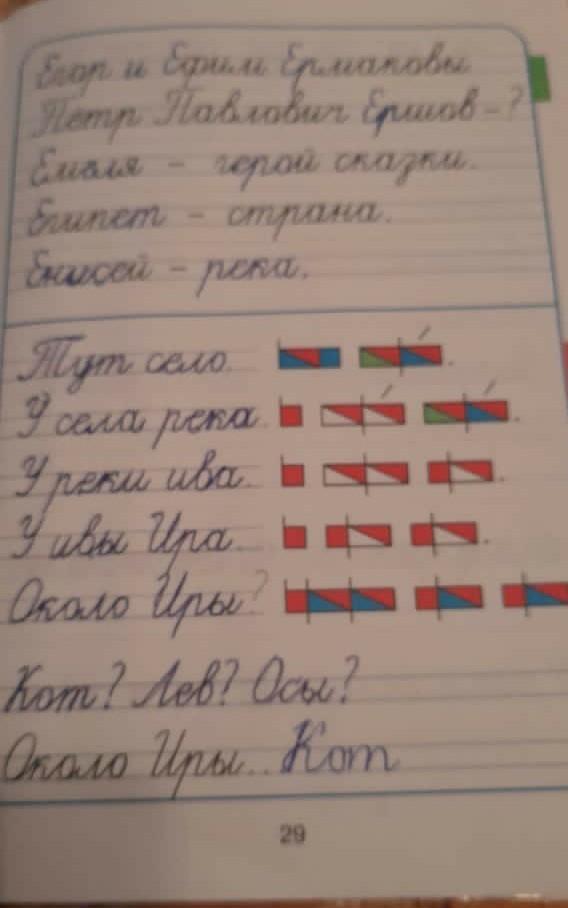 Егор и Ефим Ермаковы
Петр Павлович Ершов-?
Емеля - герой сказки.
Египет - страна.
Енисей - река.
Тут село.
У села река.
У реки ива.
У ивы Ира.
Около Иры?
Кот? Лев? Осы?
Около Иры... Кот
29